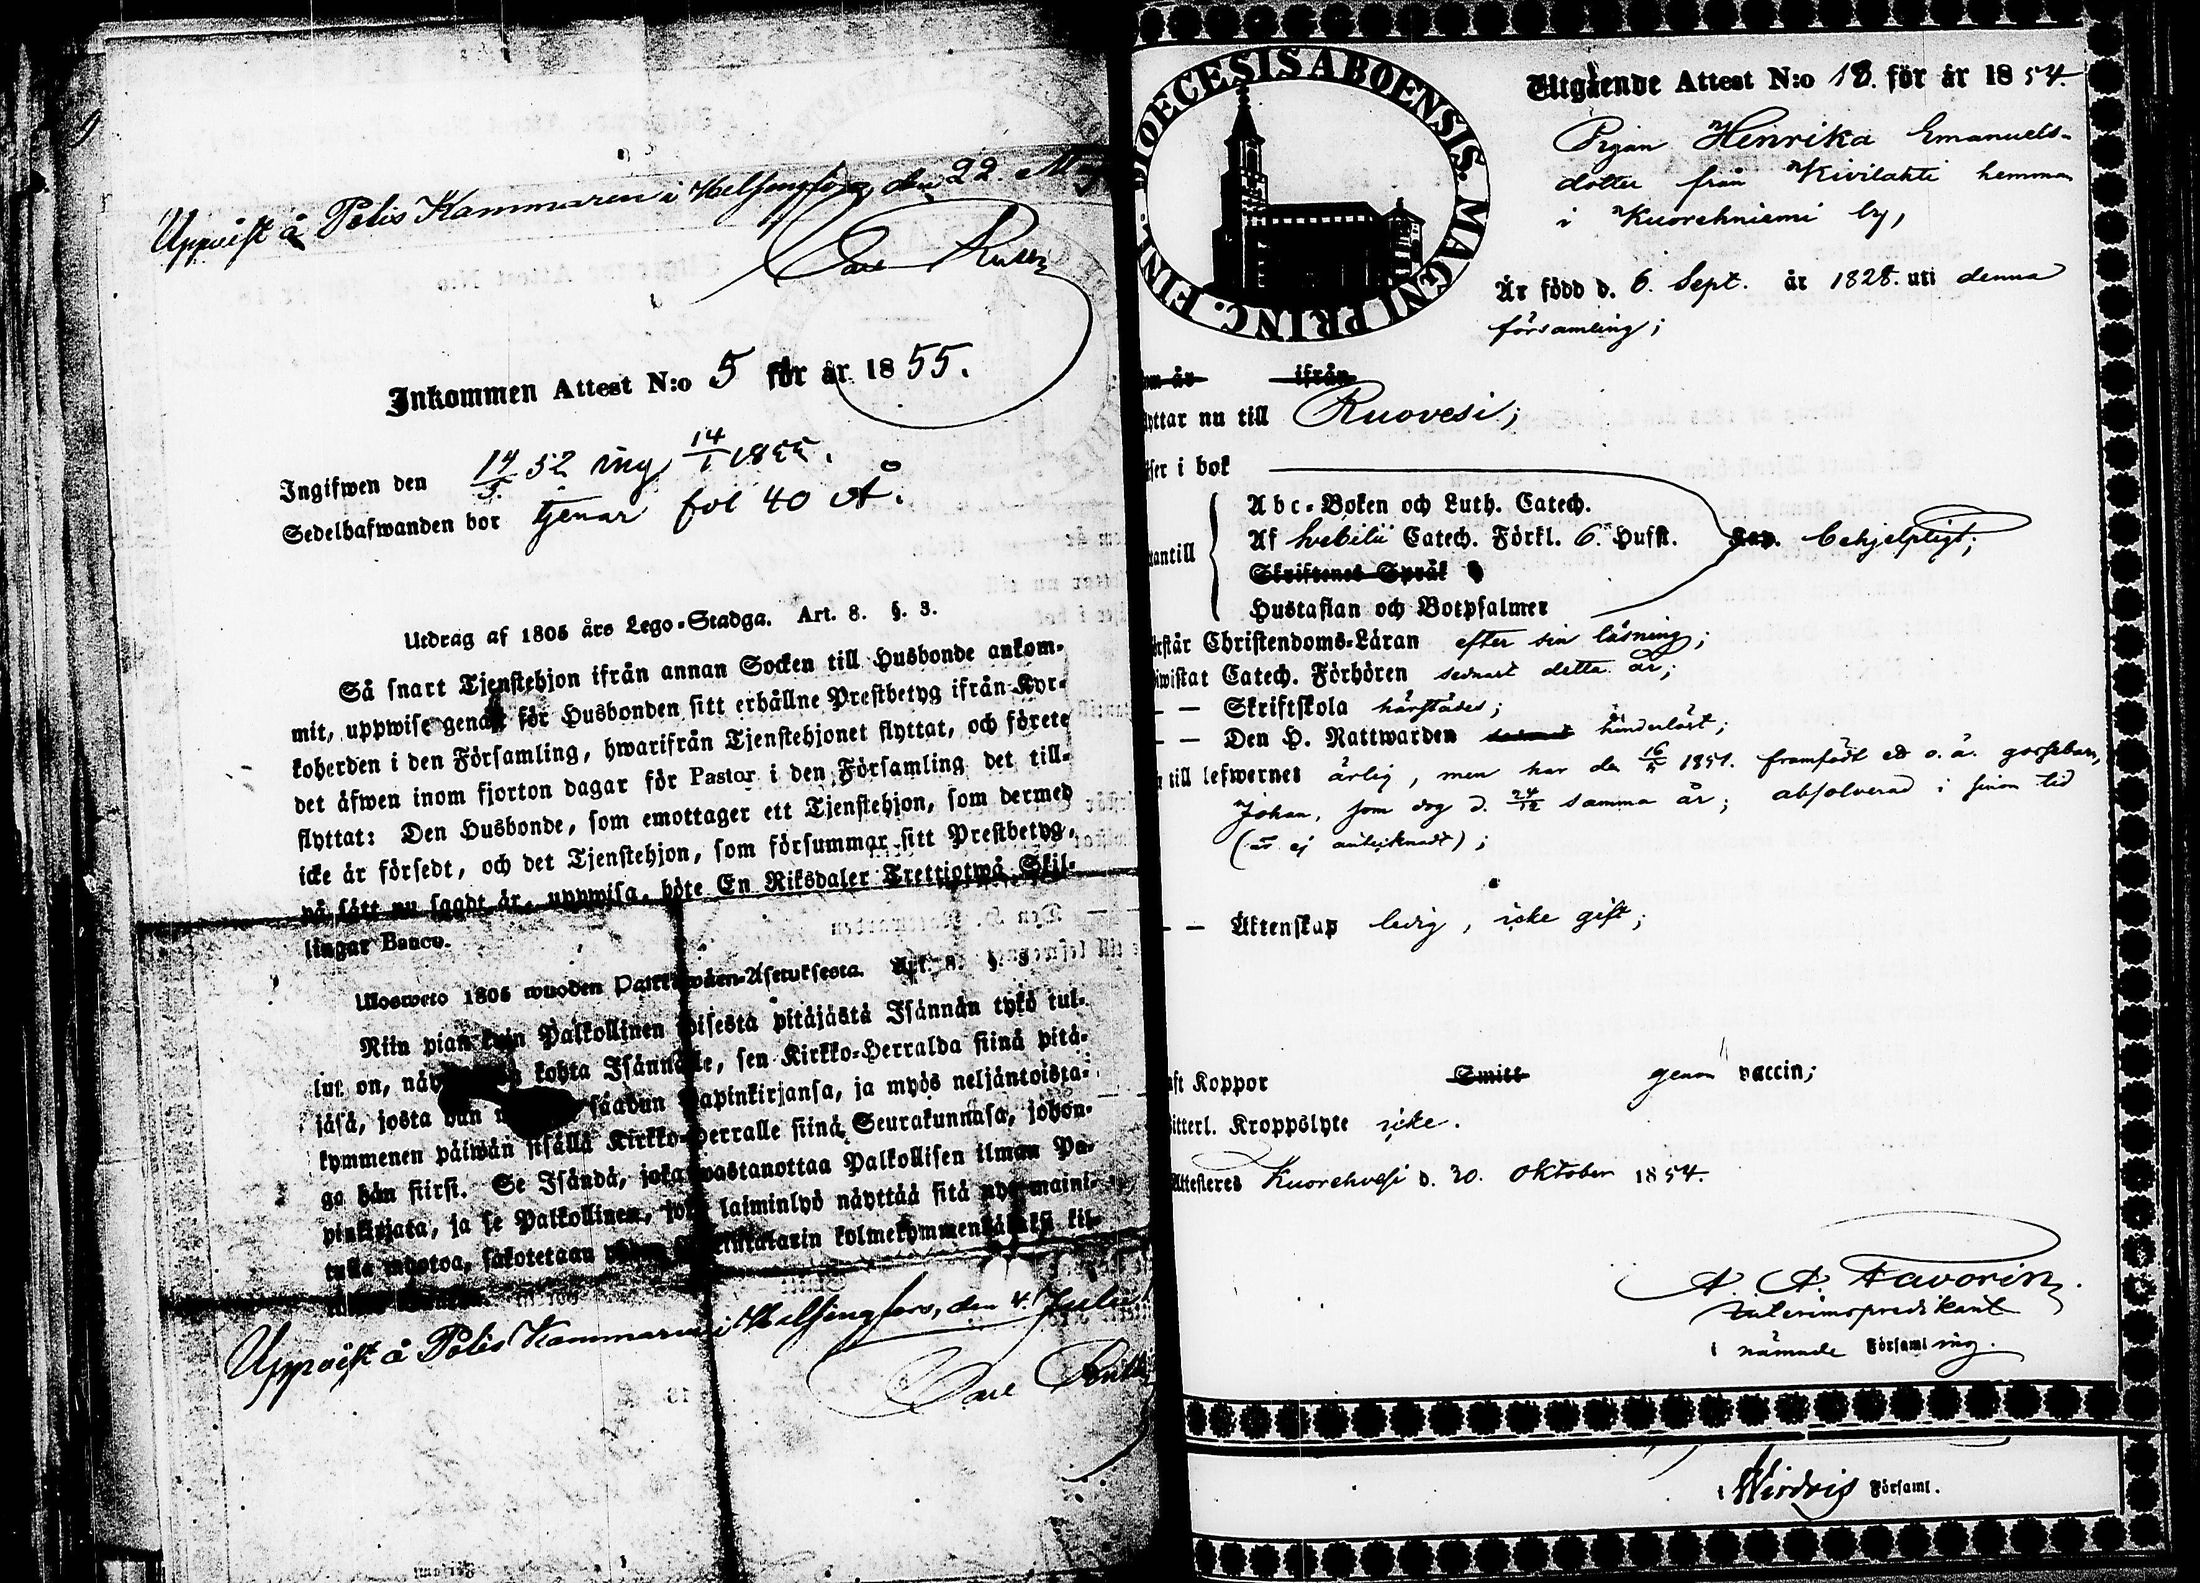 Uppvist å Polis Kammaren i Helsingfors, den 22. M
Carl
Inkommen Attest N:o 5 för år 1855.
Ingifwen den 14/5. 52 ing 14/1 1855.
Sedelhafwanden bor tjenar fol 40 A.
Utdrag af 1805 års Lego-Stadga. Art. 8. §. 3.
Så snart Tjenstehjon ifrån annan Socken till Husbonde ankom-
mit, uppwise genast för Husbonden sitt erhållne Prestbetyg ifrån Kyr-
koherden i den Församling, hwarifrån Tjenstehjonet flyttat, och förete
det äfwen inom fjorton dagar för Pastor i den Församling det till-
flyttat: Den Husbonde, som emottager ett Tjenstehjon, som dermed
icke är försedt, och det Tjenstehjon, som försummar sitt Prestbetyg,
på sätt nu sagdt är, uppwisa, böte En Riksdaler Trettiotwå Skil-
lingar Banco.
Uloswето 1805 wuoden Palkkawäen-Asetuksesta. Art. 8. §. 3
Niin pian kuin Palkollinen toisesta pitäjästä Isännän tykö tul-
lut on, näyt kohta Isännälle, sen Kirkko-Herralda siinä pitä-
jäsä, josta hän saadun Papinkirjansa, ja myös neljäntoista-
kymmenen päiwän sisällä Kirkko-Herralle siinä Seurakunnasa, johon-
ga hän siirsi. Se Isändä, joka wastanottaa Palkollisen ilman Pa-
pinkirjata, ja se Palkollinen, joka laiminlyö näyttää sitä nyt maini-
tulla muotoa, sakotetaan kolmekymmentäkaksi kil-
Uppvist å Polis Kammaren i Helsingfors, den 4. Julii
Carl
FINL. DIOECESIS ABOENSIS. MAGNI PRINC.
Utgående Attest N:o 18. för år 1854.
Pigan Henrika Emanuels-
dotter från Kivilahti hemman
i Kuorehniemi by,
Är född d. 6. Sept. år 1828. uti denna
församling;
om år ifrån
yttar nu till Ruovesi;
äser i bok
Abc-Boken och Luth. Catech.
utantill Af Svebilii Catech. Förkl. 6. Hufst. behjelpligt;
Skriftenes Språk
Hustaflan och Botpsalmer
örstår Christendoms-Läran efter sin läsning;
iwistat Catech. Förhören sednast detta år;
— — Skriftskola härstädes;
— — Den H. Nattwarden sednast hinderlöst;
n till lefwernet ärlig, men har den 16/5 1851. framfödt ett o. ä. gossebarn,
Johan, som dog d. 24/12 samma år; absolverad i sinom tid
(är ej antecknadt);
— — Äktenskap ledig, icke gift;
aft Koppor Smitt genom vaccin;
itterl. Kroppslyte icke.
Attesteres Kuorehvesi d. 20. Oktober 1854.
A. A. Favorin
Interimspredikant
i nämnde Församling.
i Wirdois Församl.